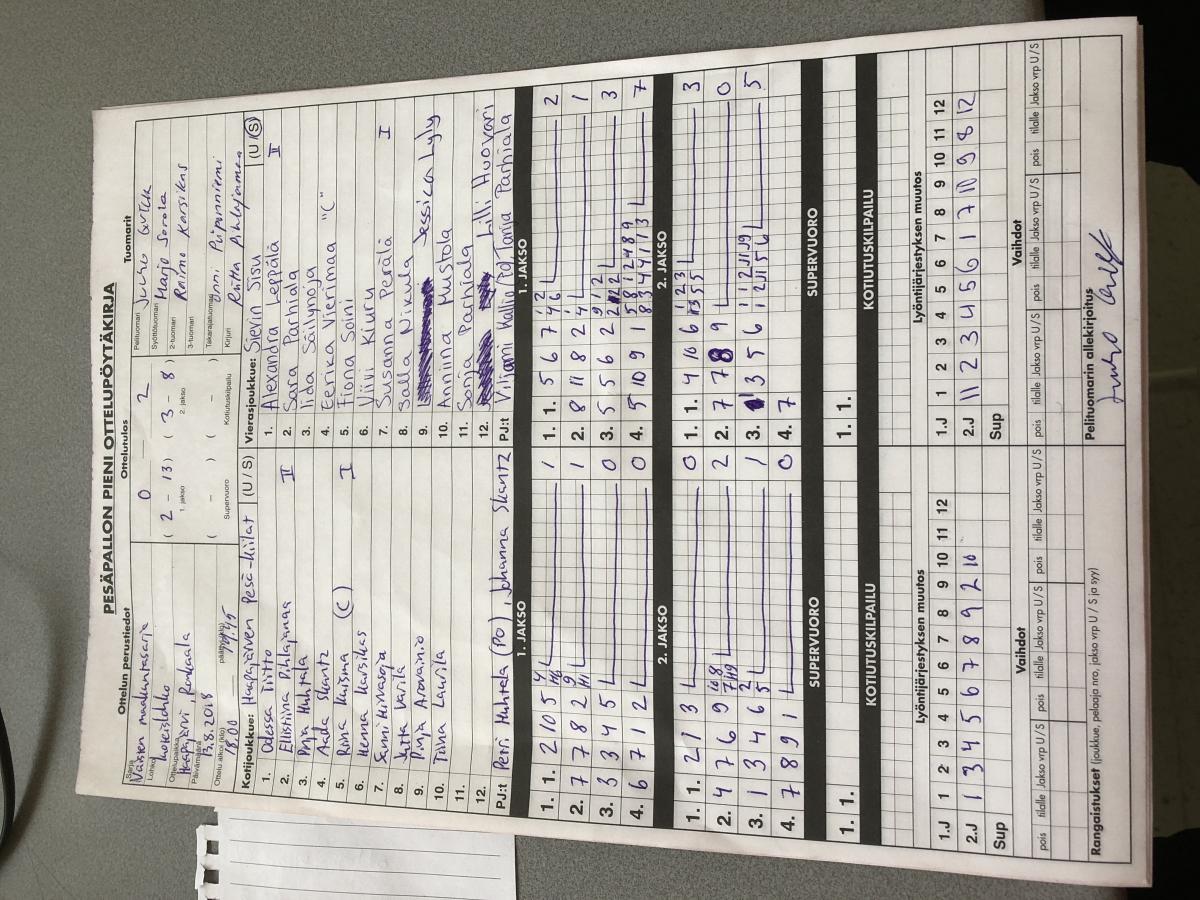 PESÄPALLON PIENI OTTELUPÖYTÄKIRJA
Ottelun perustiedot
Ottelutulos
Tuomarit
Sarja
Naisten maakuntasarja
Lohko
Ottelupaikka
Haapajärvi,
Päivämäärä
13.8.2018
Ottelu alkoi (klo) 18.00
päättyi (klo)
0 2
( 2 - 13 ) ( 3 - 8 )
1. jakso 2. jakso
( - ) ( - )
Supervuoro Kotiutuskilpailu
Pelituomari
Syöttötuomari Marjo Sorola
2-tuomari Raimo Karsikas
3-tuomari
Takarajatuomari Onni Piipponiemi
Kirjuri Riitta Pihlajamaa
Kotijoukkue: Haapajärven Pesä-Kiilat (U / S)
1. Odessa Tiitto
2. Ellistiina Pihlajamaa II
3. Pinja Huhtala
4. Aada Skantz
5. Rona Kaisma (C) I
6. Henna Karsikas
7. Sanni Hirvasoja
8. Jutta Varila
9. Pinja Arovainio
10. Tiina Laurila
11.
12.
PJ:t Petri Huhtala (PO), Johanna Skantz
Vierasjoukkue: Sievin Sisu (U / S)
1. Alexandra Leppälä II
2. Sara Parhiala
3. Iida Säilynoja
4. Eerika Vierimaa "C"
5. Fiona Soini
6. Viivi Kiuru
7. Susanna Perälä I
8. Salla Nikula
9. Jessica Lyly
10. Anniina Mustola
11. Sonja Parhiala
12. Lilli Huovari
PJ:t Viljami Kallio PO, Tanja Parhiala
1. JAKSO
1. 1. 2 10 5 1
2. 7 7 8 2 1
3. 3 3 4 5 0
4. 6 7 1 2 0
1. JAKSO
1. 1. 5 6 7 2
2. 8 11 8 2 1
3. 5 5 6 2 3
4. 5 10 9 1 7
2. JAKSO
1. 1. 2 1 3 0
2. 4 7 6 9 2
3. 1 3 4 6 1
4. 7 8 9 1 0
2. JAKSO
1. 1. 4 10 6 3
2. 7 7 8 9 0
3. 1 3 5 6 5
4. 7
SUPERVUORO
1. 1.
SUPERVUORO
1. 1.
KOTIUTUSKILPAILU
KOTIUTUSKILPAILU
Lyöntijärjestyksen muutos
1.J 1 2 3 4 5 6 7 8 9 10 11 12
2.J 1 3 4 5 6 7 8 9 2 10
Sup
Lyöntijärjestyksen muutos
1.J 1 2 3 4 5 6 7 8 9 10 11 12
2.J 11 2 3 4 5 6 1 7 10 9 8 12
Sup
Vaihdot
pois tilalle Jakso vrp U / S pois tilalle Jakso vrp U / S pois tilalle Jakso vrp U / S
Vaihdot
pois tilalle Jakso vrp U / S pois tilalle Jakso vrp U / S pois tilalle Jakso vrp U / S
Rangaistukset (joukkue, pelaaja nro, jakso vrp U / S ja syy)
Pelituomarin allekirjoitus